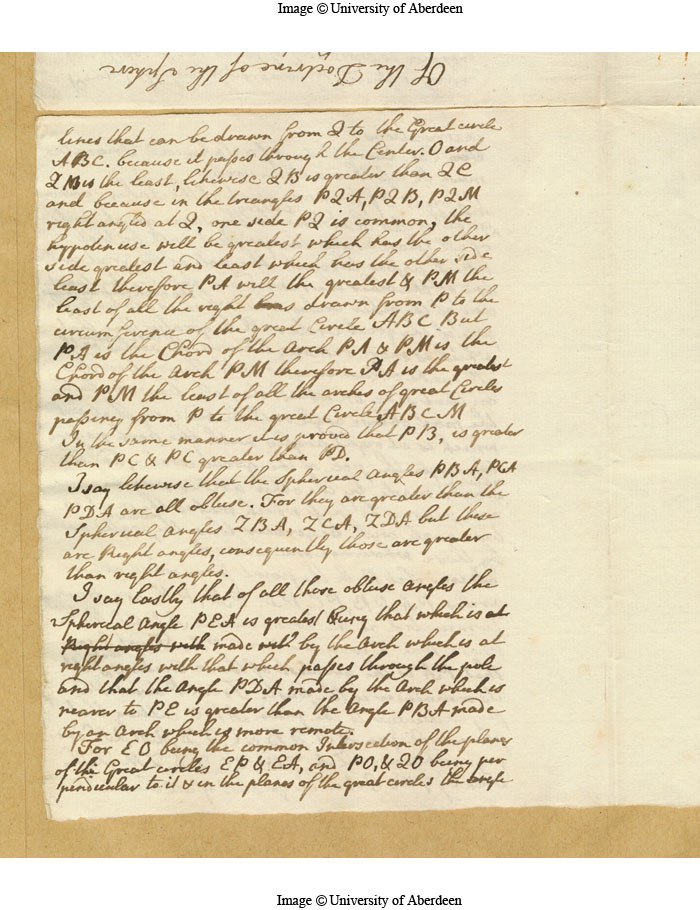 Image © University of Aberdeen
Of the Doctrine of the Sphere
lines that can be drawn from Q to the Great circle
ABC. because it passes through the Center. O and
QM is the least, likewise QB is greater than QC
and because in the triangles PQA, PQB, PQM
right angled at Q, one side PQ is common, the
hypotenuse will be greatest which has the other
side greatest and least which has the other side
least therefore PA will the greatest & PM the
least of all the right drawn from P to the
circumference of the great Circle ABC But
PA is the Chord of the Arch PA & PM is the
Chord of the Arch PM therefore PA is the greatest
and PM the least of all the arches of great Circles
passing from P to the great Circle ABCM
In the same manner it is proved that PB, is greater
than PC & PC greater than PD.
I say likewise that the Spherical Angles PBA, PCA
PDA are all obtuse. For they are greater than the
Spherical Angles ZBA, ZCA, ZDA but these
are Right angles, consequently those are greater
than right angles.
I say lastly that of all these obtuse Angles the
Spherical Angle PEA is greatest being that which is at
Right angles with made by the Arch which is at
right angles with that which passes through the pole
and that the Angle PDA made by the Arch which is
nearer to PE is greater than the Angle PBA made
by an Arch which is more remote.
For EO being the common Intersection of the planes
of the Great circles EP & EA, and PO, & QO being per
pendicular to it & in the planes of the great circles the angle
Image © University of Aberdeen